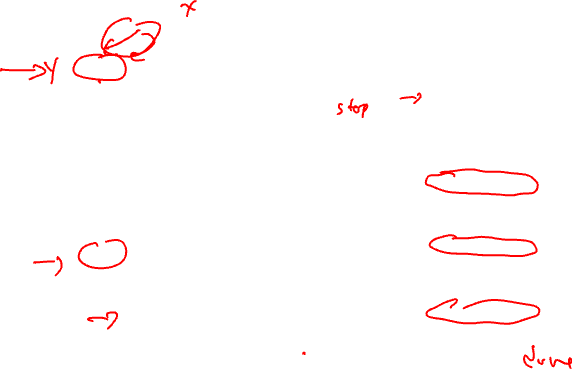 x
Y
stop →
done